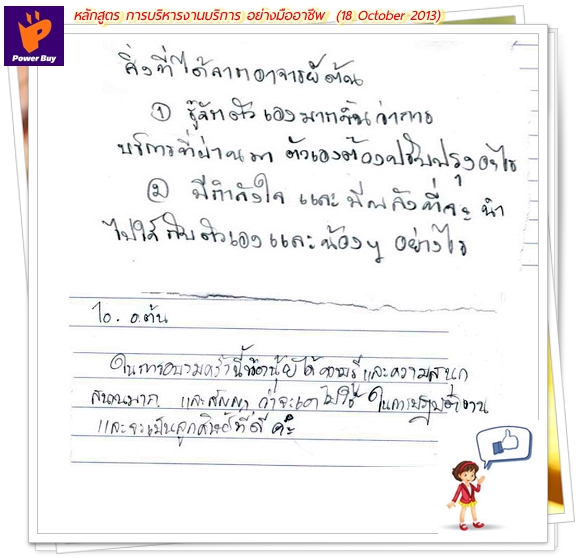 หลักสูตร การบริหารงานบริการ อย่างมืออาชีพ (18 October 2013)
Power Buy
สิ่งที่ได้จากอาจารย์ต้น
① รู้จักตัวเองมากขึ้นว่าการ
บริการที่ผ่านมา ตัวเองต้องปรับปรุงอะไร
② มีกำลังใจ และมีพลังที่จะนำ
ไปใช้กับตัวเองและน้องๆ อย่างไร
To. อ.ต้น
ในการอบรมครั้งนี้ ได้ความรู้และความสนุก
สนานมาก และสัญญาว่าจะเอาไปใช้ ในการปฏิบัติงาน
และจะเป็นลูกศิษย์ที่ดี ค่ะ